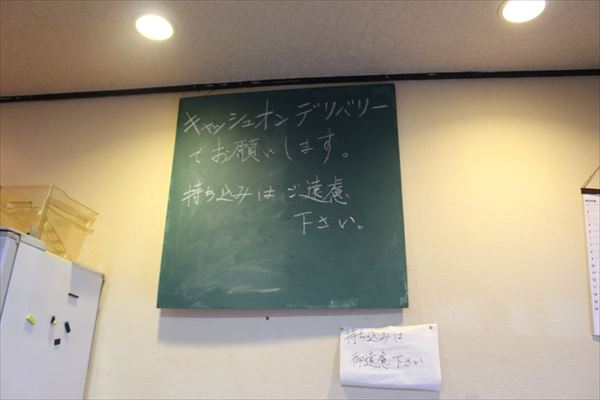 キャッシュオンデリバリー
でお願いします。
持ち込みはご遠慮
下さい。
持ち込みは
御遠慮下さい